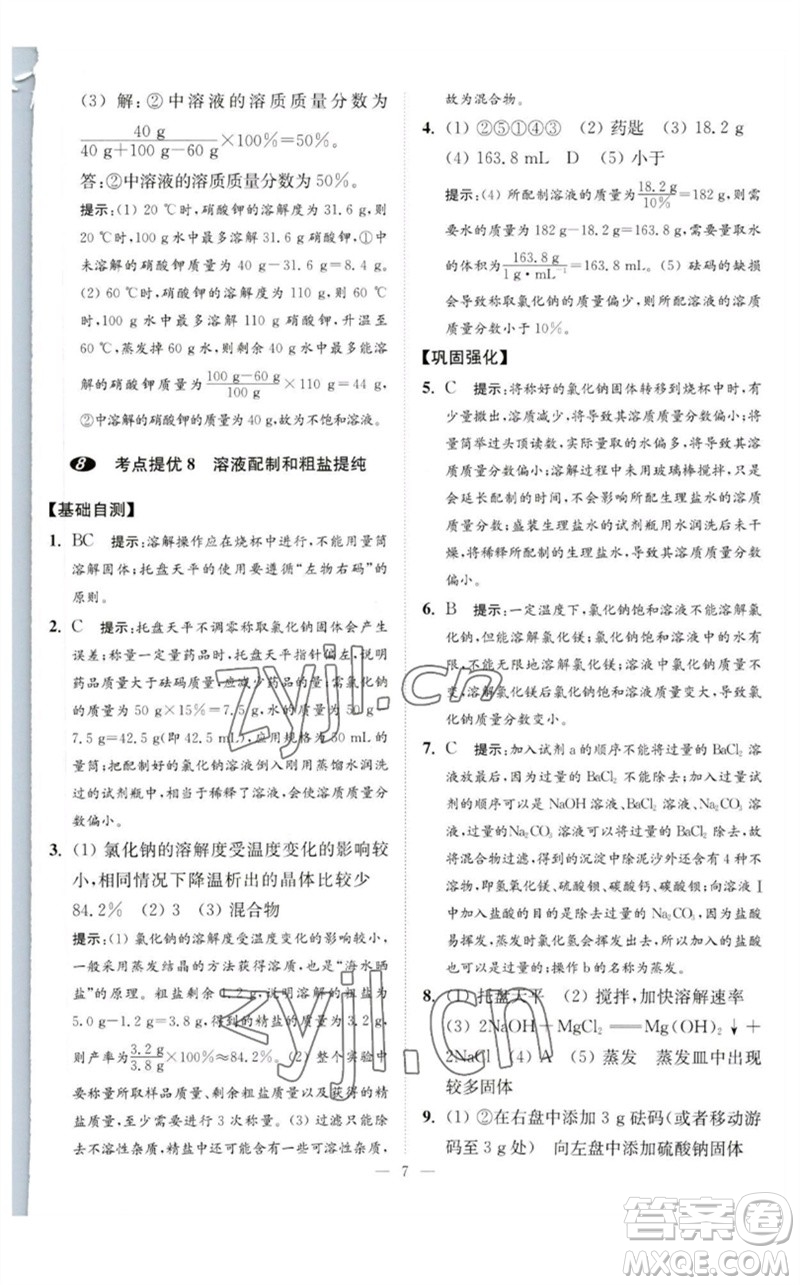 (3) 解:②中溶液的溶质质量分数为
40 g/(40 g+100 g-60 g)×100%=50%。
答:②中溶液的溶质质量分数为 50%。
提示:(1) 20 ℃时,硝酸钾的溶解度为 31.6 g,则
20 ℃时,100 g 水中最多溶解 31.6 g 硝酸钾,①中
未溶解的硝酸钾质量为 40 g-31.6 g=8.4 g。
(2) 60 ℃时,硝酸钾的溶解度为 110 g,则 60 ℃
时,100 g 水中最多溶解 110 g 硝酸钾,升温至
60 ℃,蒸发掉 60 g 水,则剩余 40 g 水中最多能溶
解的硝酸钾质量为 (100 g-60 g)/100 g ×110 g=44 g,
②中溶解的硝酸钾质量为 40 g,故为不饱和溶液。
8 考点提优 8 溶液配制和粗盐提纯
【基础自测】
1. BC 提示:溶解操作应在烧杯中进行,不能用量筒
溶解固体;托盘天平的使用要遵循“左物右码”的
原则。
2. C 提示:托盘天平不调零称取氯化钠固体会产生
误差;称量一定量药品时,托盘天平指针偏左,说明
药品质量大于砝码质量,应减少药品;氯化钠的质
量为 50 g×15%=7.5 g,水的质量为 50 g-
7.5 g=42.5 g(即 42.5 mL),应用规格为 50 mL 的
量筒;把配制好的氯化钠溶液倒入刚用蒸馏水润洗
过的试剂瓶中,相当于稀释了溶液,会使溶质质量
分数偏小。
3. (1) 氯化钠的溶解度受温度变化的影响较
小,相同情况下降温析出的晶体比较少
84.2% (2) 3 (3) 混合物
提示:(1) 氯化钠的溶解度受温度变化的影响较小,
一般采用蒸发结晶的方法获得溶质,这也是“海水晒
盐”的原理。粗盐剩余 1.2 g,说明溶解的粗盐质量为
5.0 g-1.2 g=3.8 g,得到的精盐的质量为 3.2 g,
则产率为 3.2 g/3.8 g ×100%≈84.2%。(2) 整个实验中
需要称量所取样品质量、剩余的样品质量以及获得的
精盐质量,至少需要进行 3 次称量。(3) 过滤只能除
去不溶性杂质,无法除去可溶性杂质,所得精盐中
故为混合物。
4. (1) ②⑤①④③ (2) 药匙 (3) 18.2 g
(4) 163.8 mL D (5) 小于
提示:(4) 所配制溶液的质量为 18.2 g/10% =182 g,则需
要水的质量为 182 g-18.2 g=163.8 g,需要的水
的体积为 163.8 g/(1 g·mL⁻¹) =163.8 mL。(5) 砝码的缺损
会导致称取的氯化钠的质量偏少,则所配溶液的溶质
质量分数小于 10%。
【巩固强化】
5. C 提示:将称好的氯化钠固体转移到烧杯中时,有
少量撒出,溶质减少,将导致其溶质质量分数偏小;
量筒读数时,俯视读数,量取的水偏少,将导致其溶质质量分数偏大;
延长配制的时间,不会影响生理盐水的溶质质量
分数;盛装生理盐水的试剂瓶用水润洗后未干
燥,将稀释配制的生理盐水,导致其溶质质量分数
偏小。
6. B 提示:一定温度下,氯化钠饱和溶液不能溶解氯
化钠,但能溶解氯化镁;氯化钠饱和溶液中的水有
限,不能无限地溶解氯化镁;加入的氯化镁能够溶
解,溶解氯化镁后氯化钠饱和溶液质量变大,氯化
钠的质量分数变小。
7. C 提示:加入试剂 a 的顺序不能将过量的 BaCl₂ 溶
液放最后,否则过量的 BaCl₂ 不能除去;加入顺序
可以是 NaOH 溶液、BaCl₂ 溶液、Na₂CO₃ 溶液;
过量的Na₂CO₃ 可用过量的盐酸除去,操作 a 是固液
混合物过滤,得到的沉淀中除泥沙外还含有 4 种不
溶物,即氢氧化镁、硫酸钡、碳酸钙、碳酸钡;向溶液Ⅰ
中加入盐酸的目的是除去过量的 Na₂CO₃,因为盐酸
易挥发,蒸发时盐酸可挥发出来,所以加入的盐酸可
以过量;操作 b 的名称为蒸发。
8. (1) 托盘天平 (2) 搅拌,加快溶解速率
(3) 2NaOH+MgCl₂══Mg(OH)₂↓+
2NaCl (4) A (5) 蒸发 蒸发皿中出现
较多固体
9. (1) ②在右盘中添加 3 g 砝码(或者移动游
码至 3 g 处) 向左盘中添加硫酸钠固体
— 7 —
zyjl.cn
zyjl.cn
答案卷
MXQE.COM